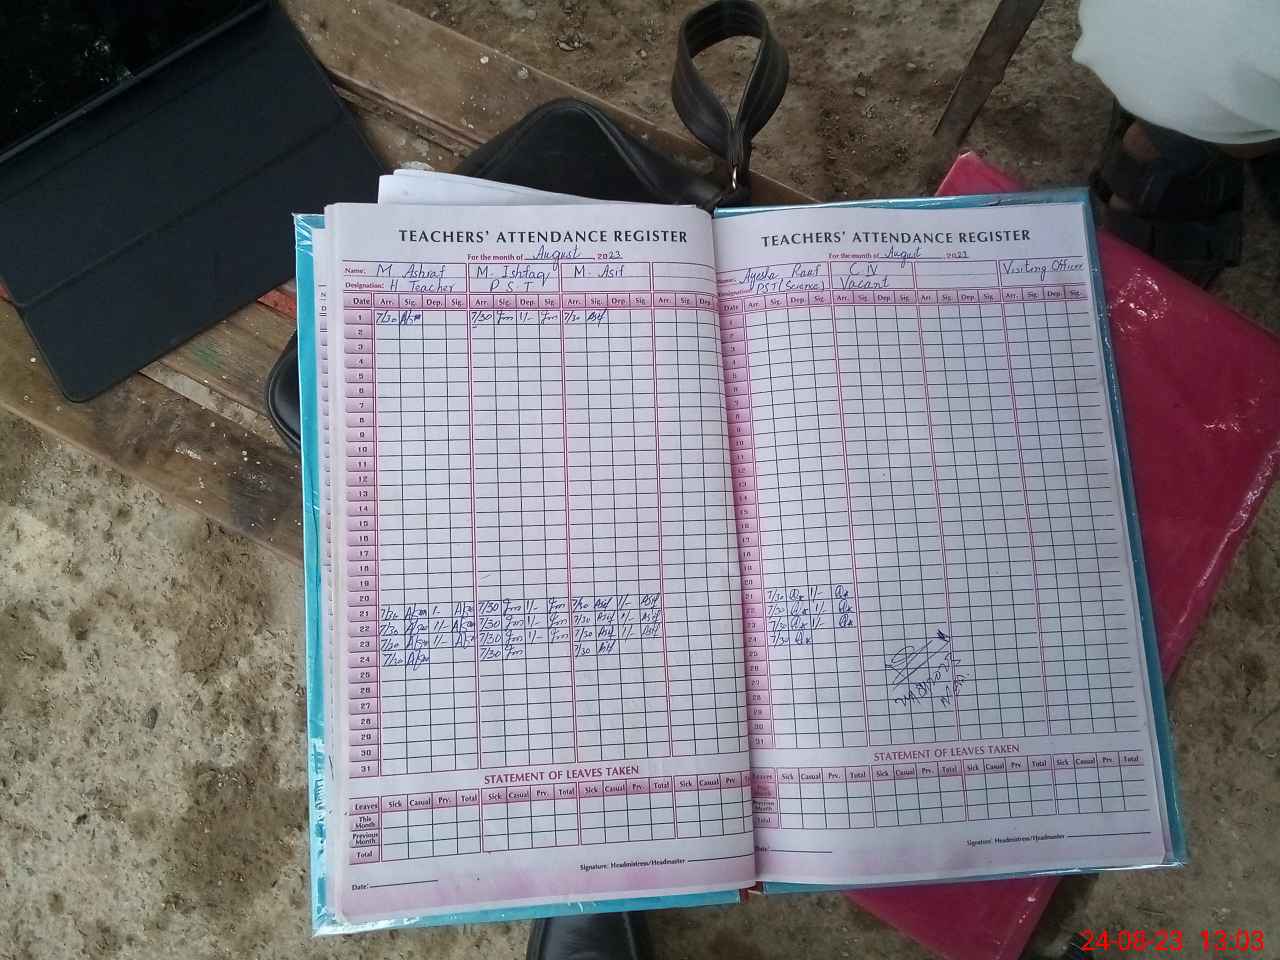 TEACHERS' ATTENDANCE REGISTER
For the month of August 2023
Name: M. Ashraf M. Ishfaq M. Asif
Designation: H Teacher P S T
Date Arr. Sig. Dep. Sig. Arr. Sig. Dep. Sig. Arr. Sig. Dep. Sig. Arr. Sig. Dep.
1 7/30 7/30 1/- 7/30 Asif
2
3
4
5
6
7
8
9
10
11
12
13
14
15
16
17
18
19
20
21 7/30 1/- 7/30 1/- 7/30 Asif 1/- Asif
22 7/30 1/- 7/30 1/- 7/30 Asif 1/- Asif
23 7/30 1/- 7/30 1/- 7/30 Asif 1/- Asif
24 7/30 7/30 7/30 Asif
25
26
27
28
29
30
31
STATEMENT OF LEAVES TAKEN
Leaves Sick Casual Prv. Total Sick Casual Prv. Total Sick Casual Prv. Total Sick Casual Prv.
This Month
Previous Month
Total
Signature: Headmistress/Headmaster
Date:
TEACHERS' ATTENDANCE REGISTER
For the month of August 2023
Name: Ayesha Rauf C N Visiting Officer
PST (Science) Vacant
Date Arr. Sig. Dep. Sig. Arr. Sig. Dep. Sig. Arr. Sig. Dep. Sig. Arr. Sig. Dep. Sig.
1
2
3
4
5
6
7
8
9
10
11
12
13
14
15
16
17
18
19
20
21 7/30 1/-
22 7/30 1/-
23 7/30 1/-
24 7/30
25
26
27
28
29
30
31
STATEMENT OF LEAVES TAKEN
Leaves Sick Casual Prv. Total Sick Casual Prv. Total Sick Casual Prv. Total Sick Casual Prv. Total
Previous Month
Total
Signature: Headmistress/Headmaster
Date:
24-08-23 13:03